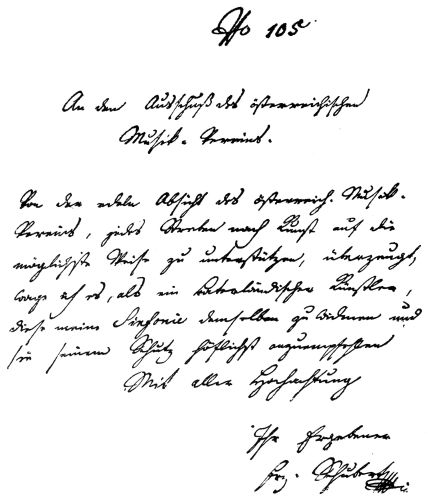 No 105
An den Ausschuß des österreichischen
Musik-Vereins.
Von der edeln Absicht des österreich. Musik-
Vereins, jedes Streben nach Kunst auf die
möglichste Weise zu unterstützen, überzeugt,
wage ich es, als ein vaterländischer Künstler,
diese meine Sinfonie demselben zu widmen und
sie seinem Schutz höflichst anzuempfehlen
Mit aller Hochachtung
Ihr Ergebener
Frz. Schubert